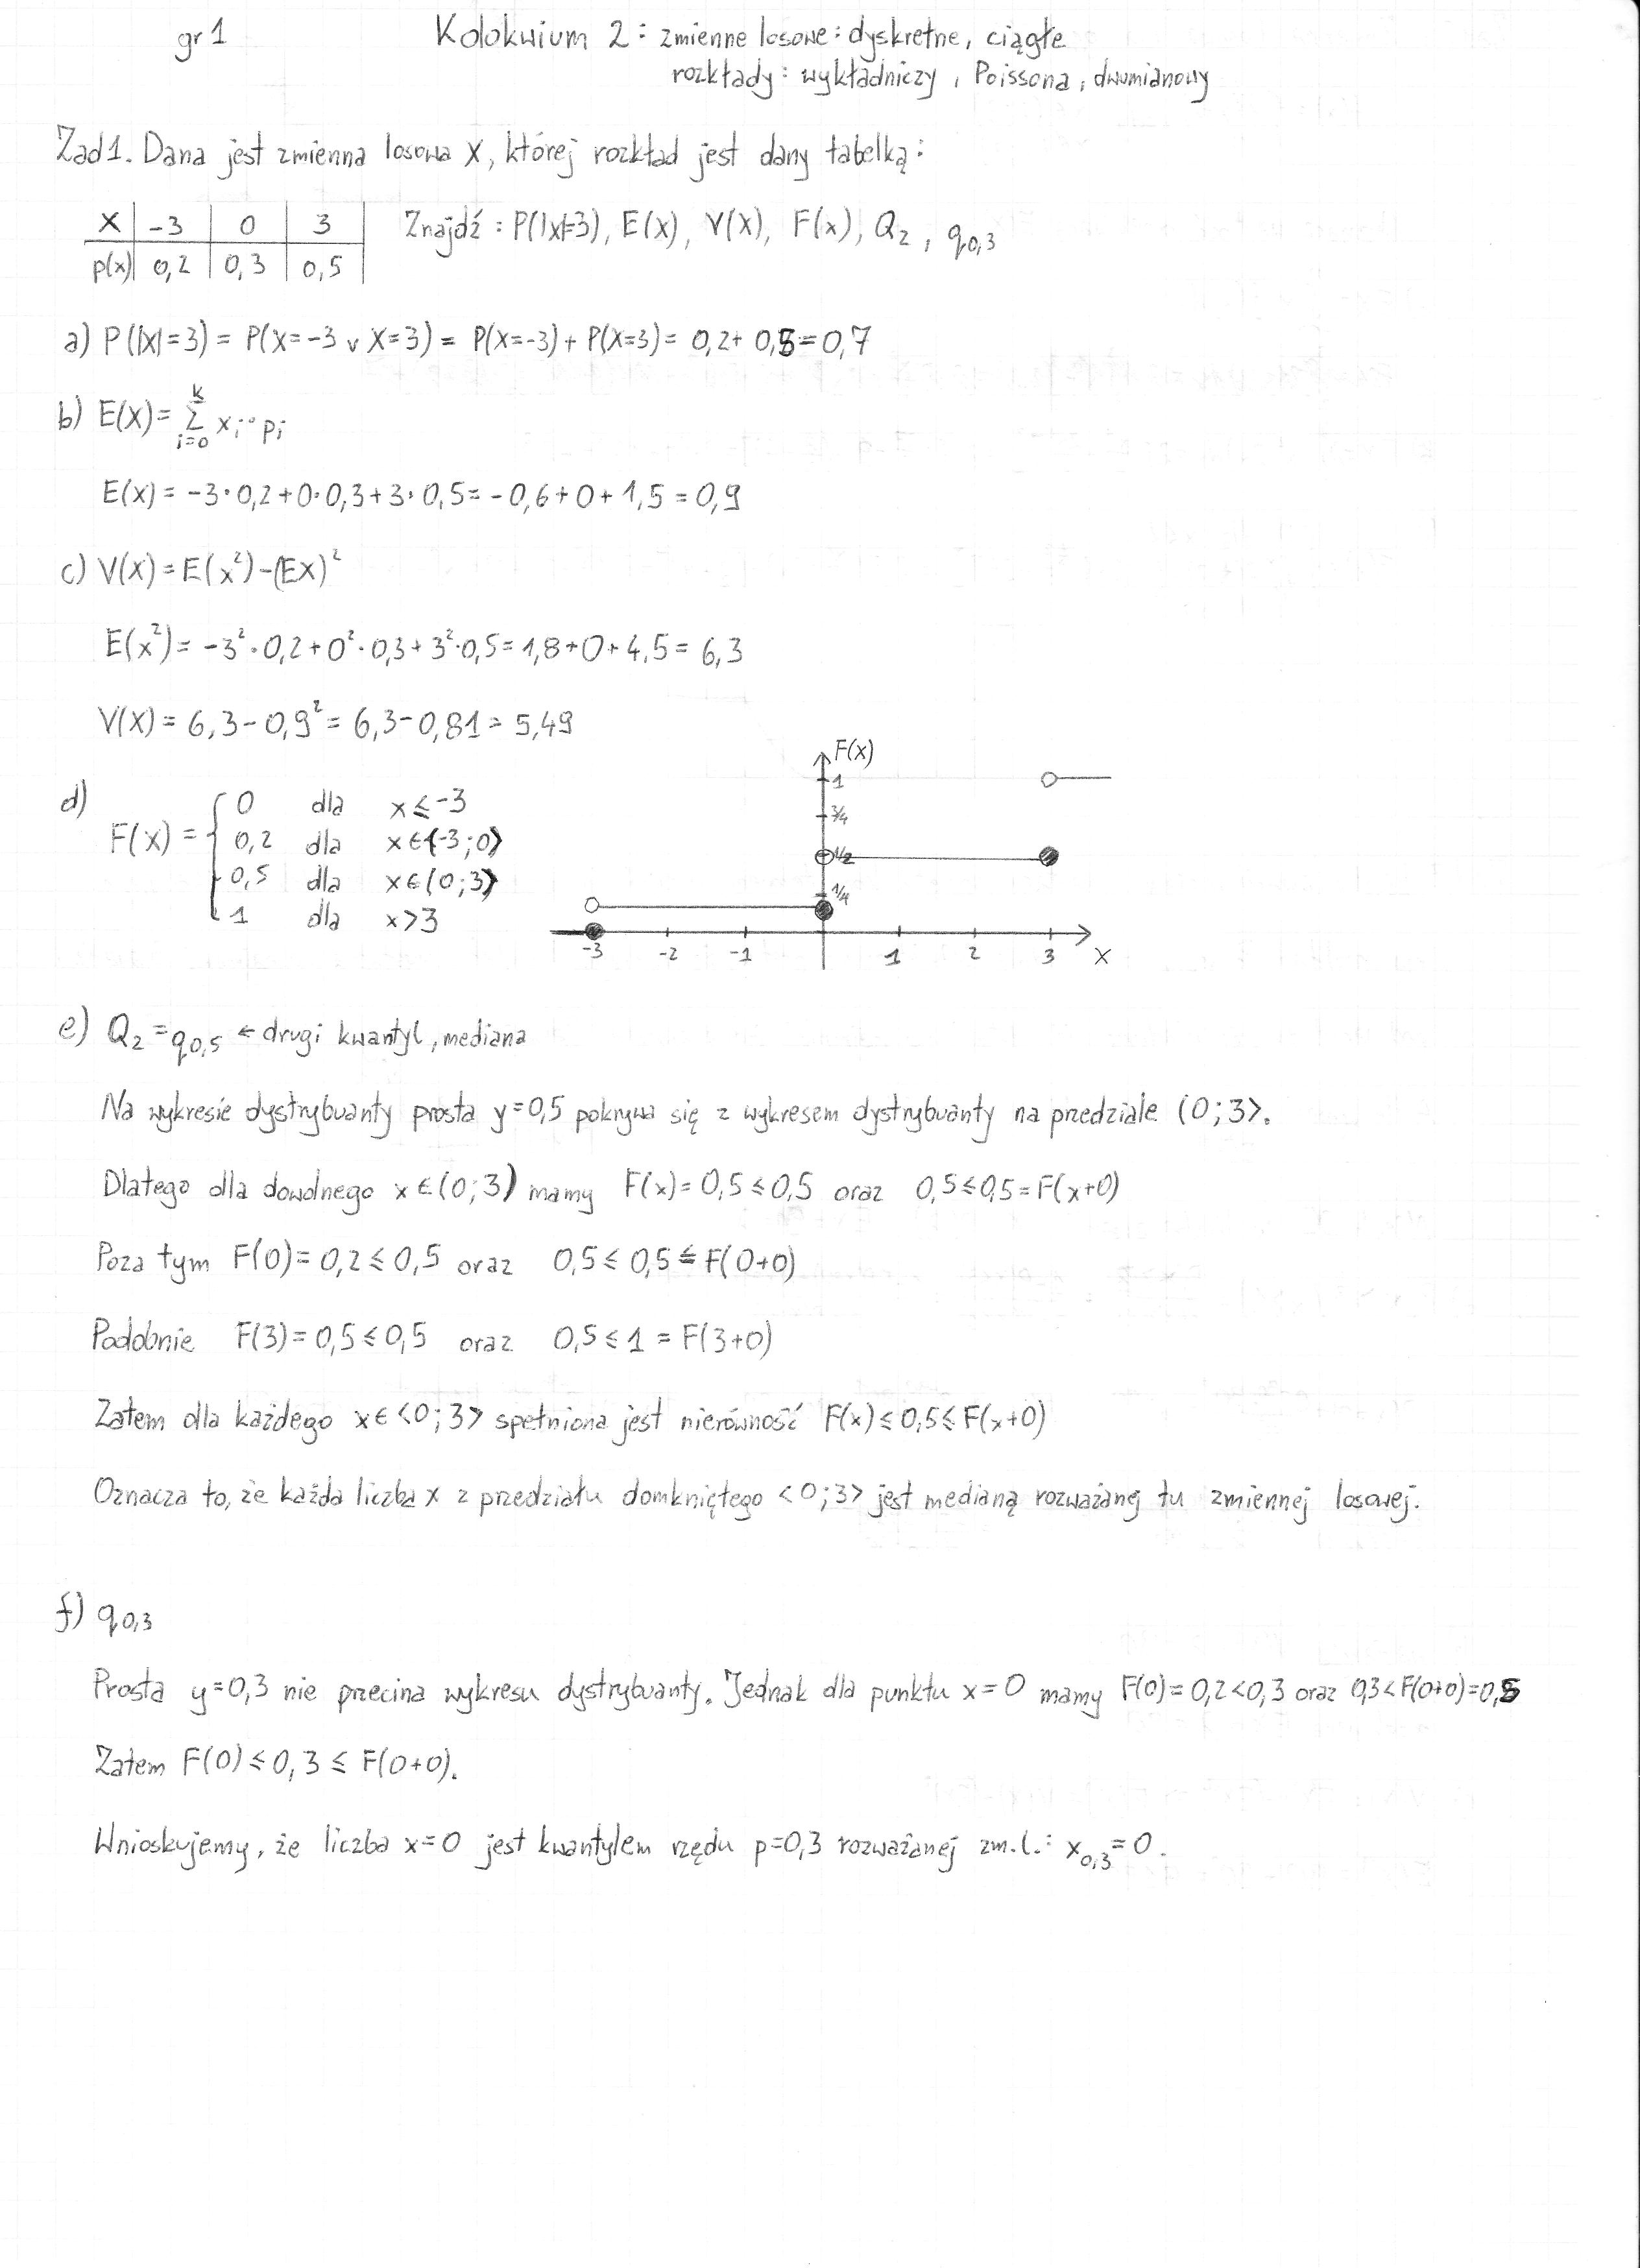 gr 1 Kolokwium 2: zmienne losowe: dyskretne, ciągłe
rozkłady: wykładniczy, Poissona, dwumianowy
Zad1. Dana jest zmienna losowa X, której rozkład jest dany tabelką:
X | -3 | 0 | 3 | Znajdź: P(|X|=3), E(X), V(X), F(x), Q₂, q₀,₃
p(x) | 0,2 | 0,3 | 0,5 |
a) P(|X|=3) = P(X=-3 ∨ X=3) = P(X=-3) + P(X=3) = 0,2 + 0,5 = 0,7
b) E(X) = Σ_{i=0}^{k} xᵢ · pᵢ
E(X) = -3·0,2+0·0,3+3·0,5 = -0,6+0+1,5 = 0,9
c) V(X) = E(x²)-(EX)²
E(x²) = -3²·0,2+0²·0,3+3²·0,5 = 1,8+0+4,5 = 6,3
V(X) = 6,3-0,9² = 6,3-0,81 = 5,49
d)
F(x) = {
0 dla x≤-3
0,2 dla x∈(-3;0⟩
0,5 dla x∈(0;3⟩
1 dla x>3
F(x)
1
3/4
1/2
1/4
-3 -2 -1 1 2 3 X
e) Q₂ = q₀,₅ ← drugi kwantyl, mediana
Na wykresie dystrybuanty prosta y=0,5 pokrywa się z wykresem dystrybuanty na przedziale (0;3⟩.
Dlatego dla dowolnego x∈(0;3) mamy F(x) = 0,5 ≤ 0,5 oraz 0,5 ≤ 0,5 = F(x+0)
Poza tym F(0) = 0,2 ≤ 0,5 oraz 0,5 ≤ 0,5 ≤ F(0+0)
Podobnie F(3) = 0,5 ≤ 0,5 oraz 0,5 ≤ 1 = F(3+0)
Zatem dla każdego x∈⟨0;3⟩ spełniona jest nierówność F(x) ≤ 0,5 ≤ F(x+0)
Oznacza to, że każda liczba x z przedziału domkniętego ⟨0;3⟩ jest medianą rozważanej tu zmiennej losowej.
f) q₀,₃
Prosta y=0,3 nie przecina wykresu dystrybuanty. Jednak dla punktu x=0 mamy F(0) = 0,2<0,3 oraz 0,3<F(0+0)=0,5
Zatem F(0) ≤ 0,3 ≤ F(0+0).
Wnioskujemy, że liczba x=0 jest kwantylem rzędu p=0,3 rozważanej zm.l.: x₀,₃=0.